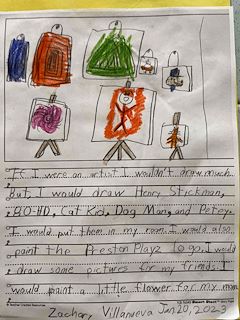 If I were an artist I wouldn't draw much.
But, I would draw Henry Stickman,
80-HD, Cat Kid, Dog Man, and Petey.
I would put them in my room. I would also
paint the Preston Playz logo. I would
draw some pictures for my friends. I
would paint a little flower for my mom.
Zachary Villanueva Jan 20, 2023